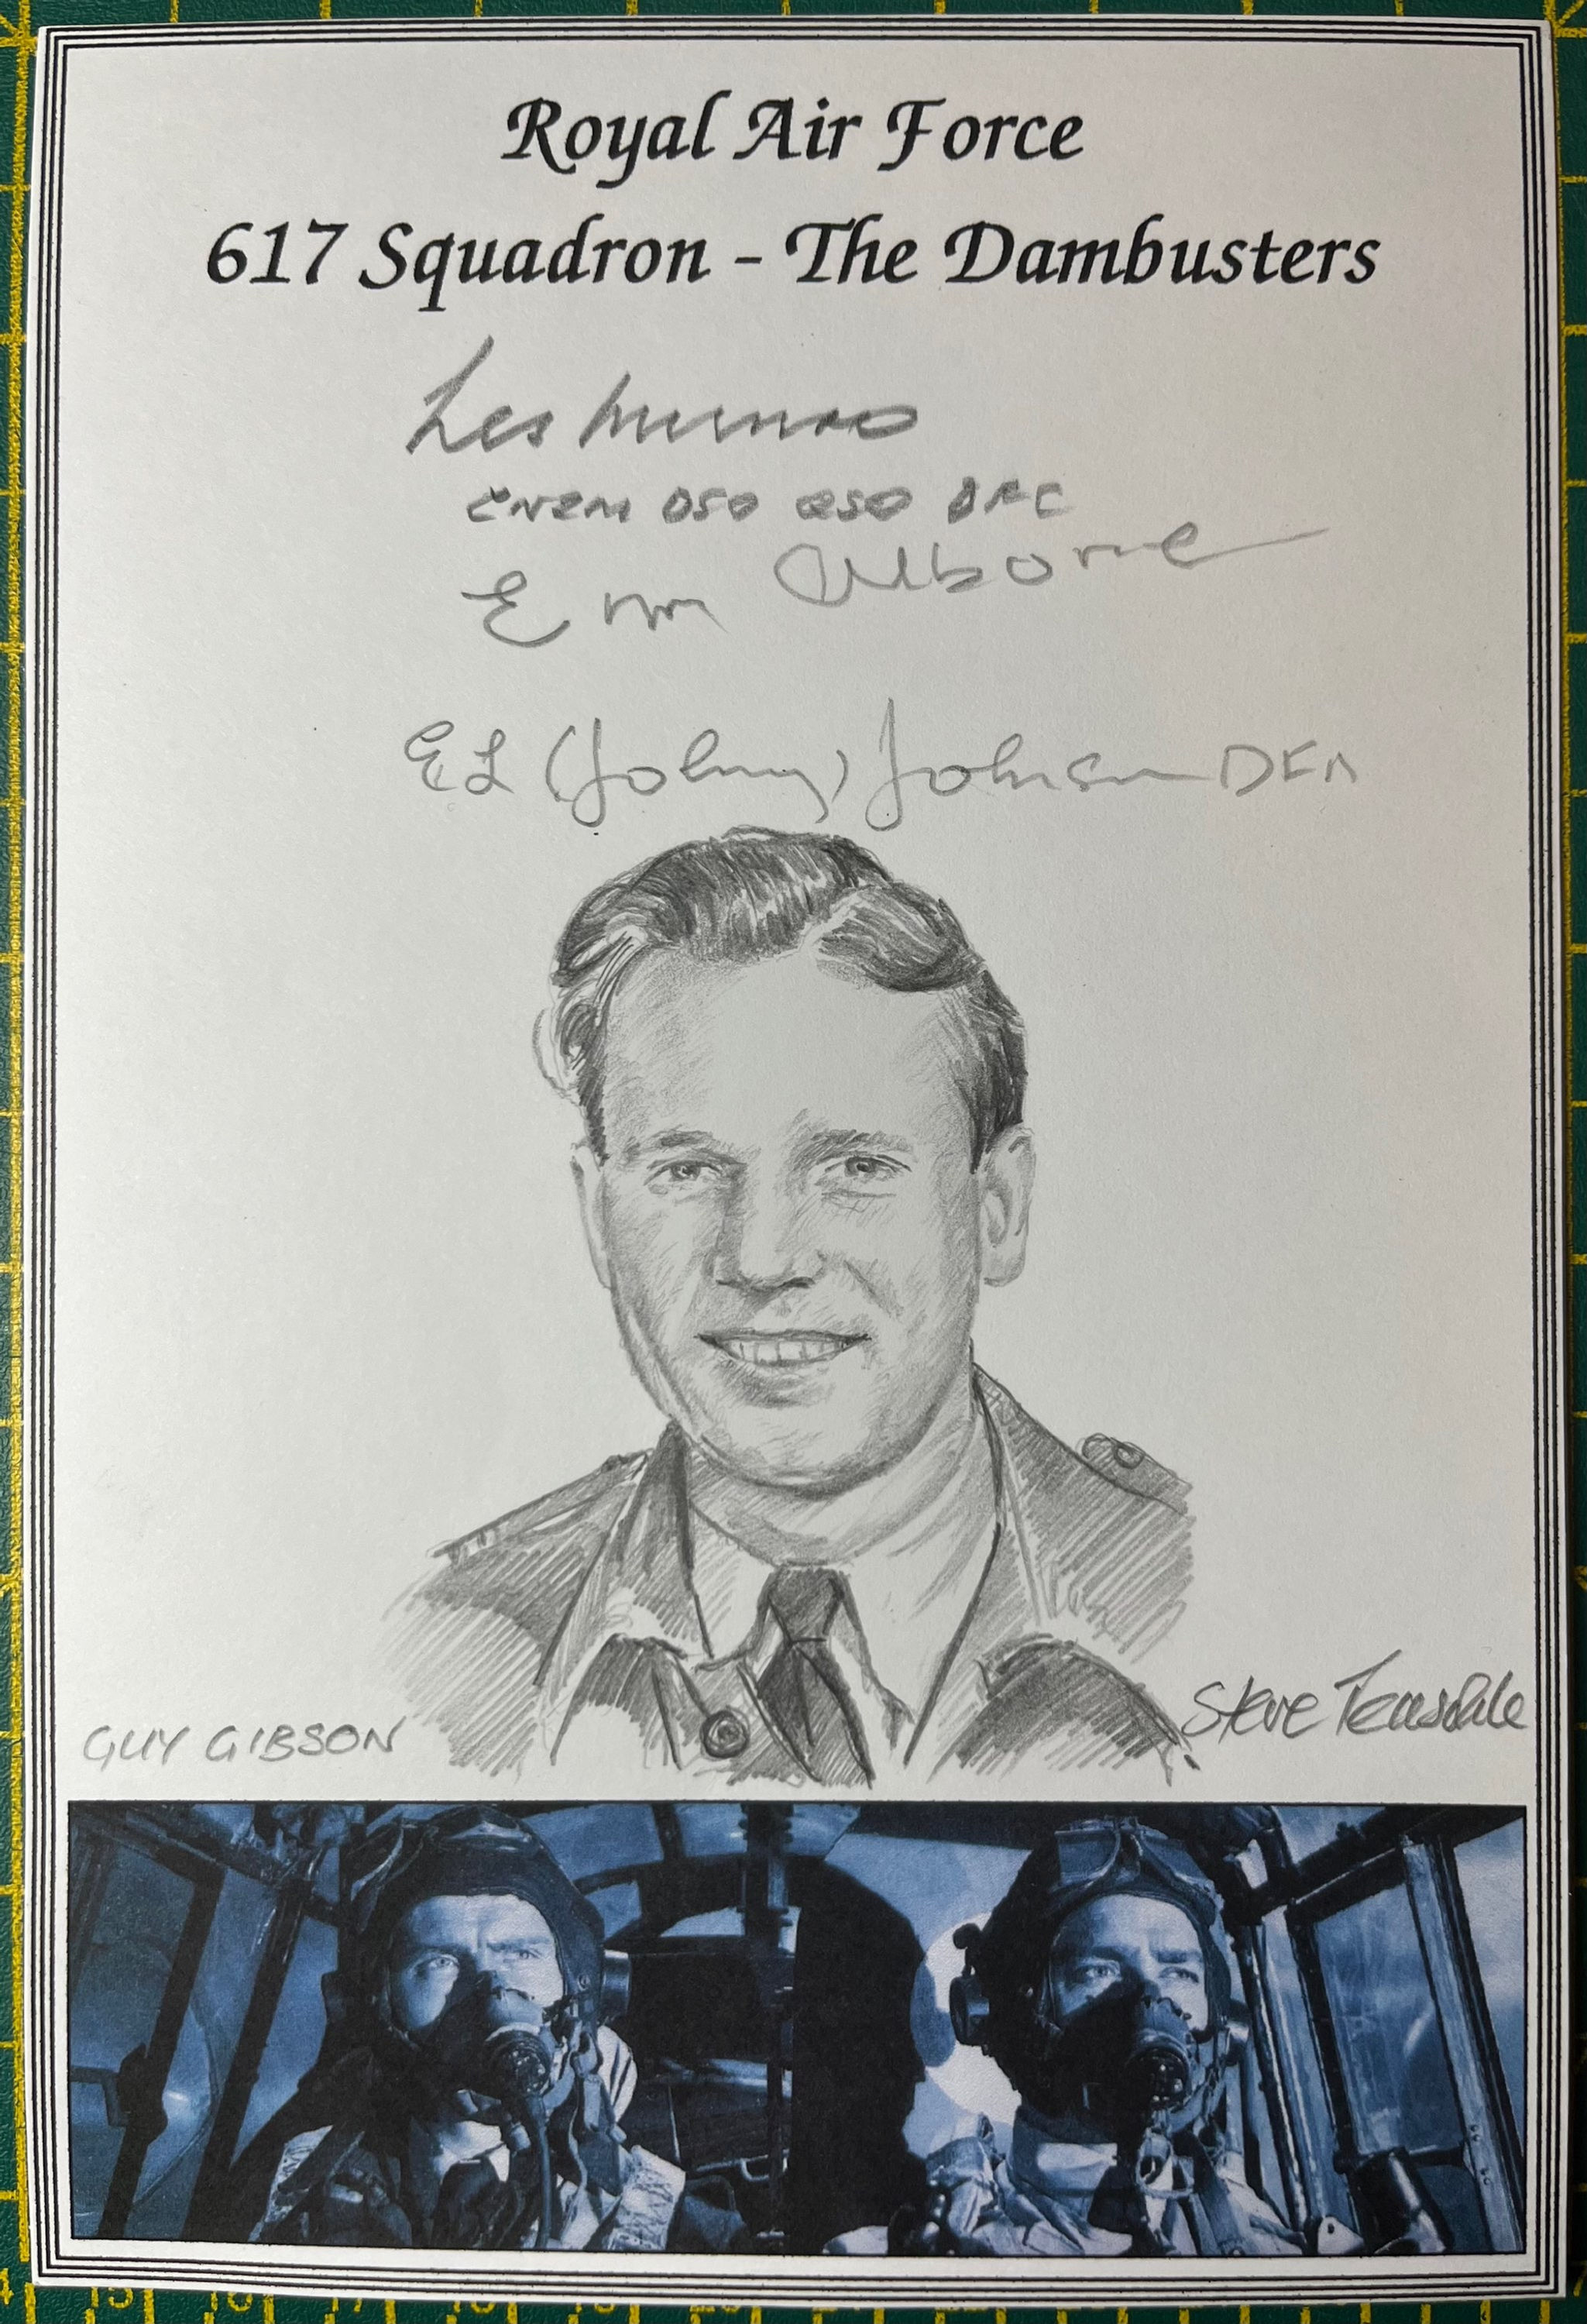 Royal Air Force
617 Squadron - The Dambusters
Les Munro
CNZM DSO QSO DFC
E L (Johnny) Johnson DFM
GUY GIBSON
Steve Teasdale